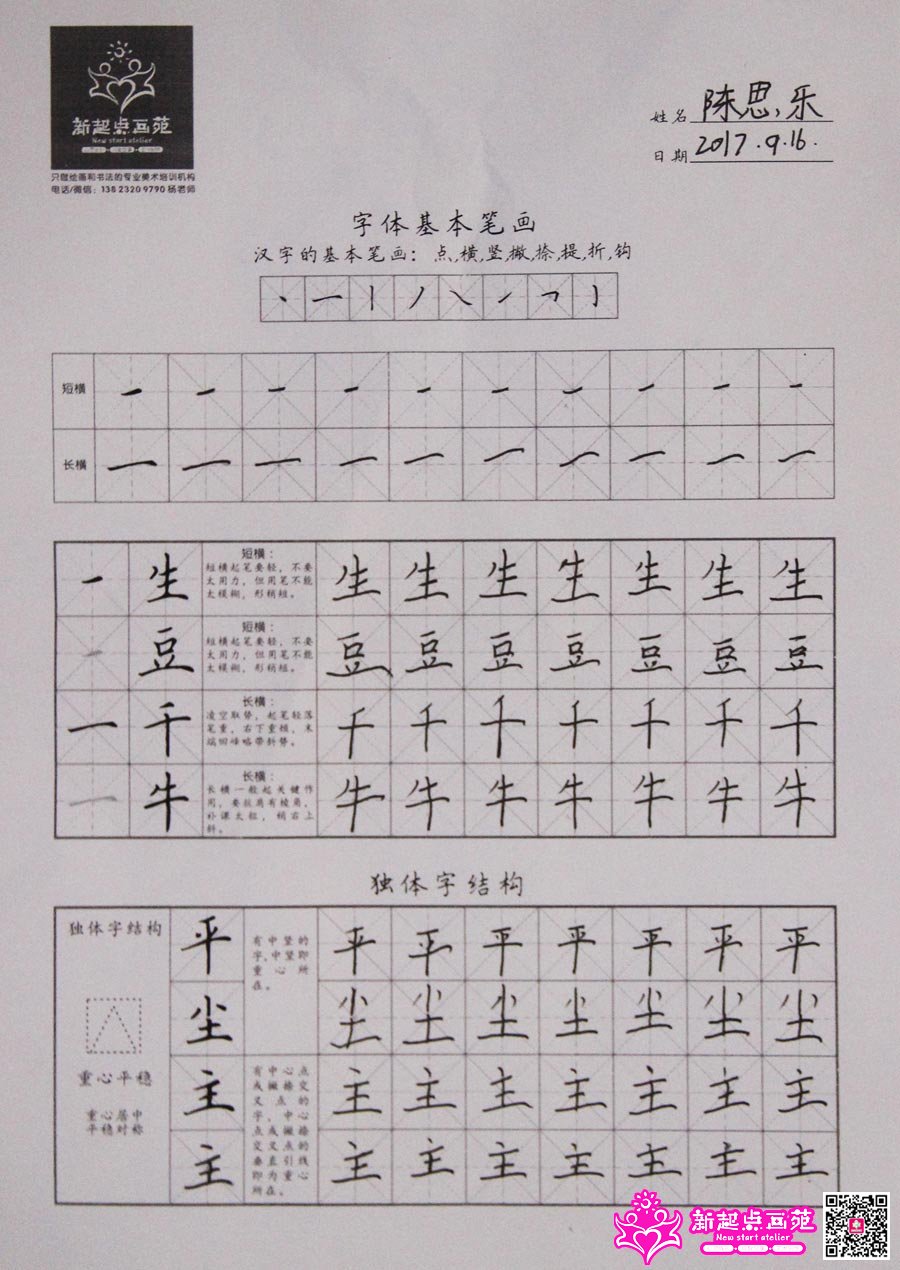 新起点画苑
New start atelier
只做绘画和书法的专业美术培训机构
电话/微信：138 2320 9790 杨老师
姓名 陈思乐
日期 2017.9.16.
字体基本笔画
汉字的基本笔画：点,横,竖,撇,捺,提,折,钩
丶 一 丨 丿 ㇏ ㇀ ㇕ 亅
短横 一 一 一 一 一 一 一 一 一 一
长横 一 一 一 一 一 一 一 一 一 一
一 生
短横：
短横起笔要轻，不要
太用力，但用笔不能
太模糊，形稍短。
生 生 生 生 生 生 生
一 豆
短横：
短横起笔要轻，不要
太用力，但用笔不能
太模糊，形稍短。
豆 豆 豆 豆 豆 豆 豆
一 千
长横：
凌空取势，起笔轻落
笔重，右下重顿，末
端回峰略带斜势。
千 千 千 千 千 千 千
一 牛
长横：
长横一般起关键作
用，要拉肩有棱角，
补课太粗，稍右上
斜。
牛 牛 牛 牛 牛 牛 牛
独体字结构
独体字结构
重心平稳
重心居中
平稳对称
平
有中竖的
字,中竖即
重心所
在。
平 平 平 平 平 平 平
尘
尘 尘 尘 尘 尘 尘 尘
主
有中心点
或撇捺交
叉点的
字，中心
点或撇捺
交叉点的
垂直引线
即为重心
所在。
主 主 主 主 主 主 主
主
主 主 主 主 主 主 主
新起点画苑
New start atelier